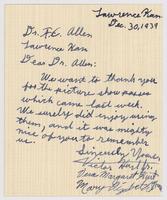 Lawrence Kan
Dec. 30, 1939
Dr. F.C. Allen
Lawrence Kan
Dear Dr. Allen:
We want to thank you
for the picture show passes
which came last week.
We surely did enjoy using
them, and it was mighty
nice of you to remember
us.
Sincerely Yours,
Victor Hurt Jr.
Margaret Hurt
Mary Elizabeth